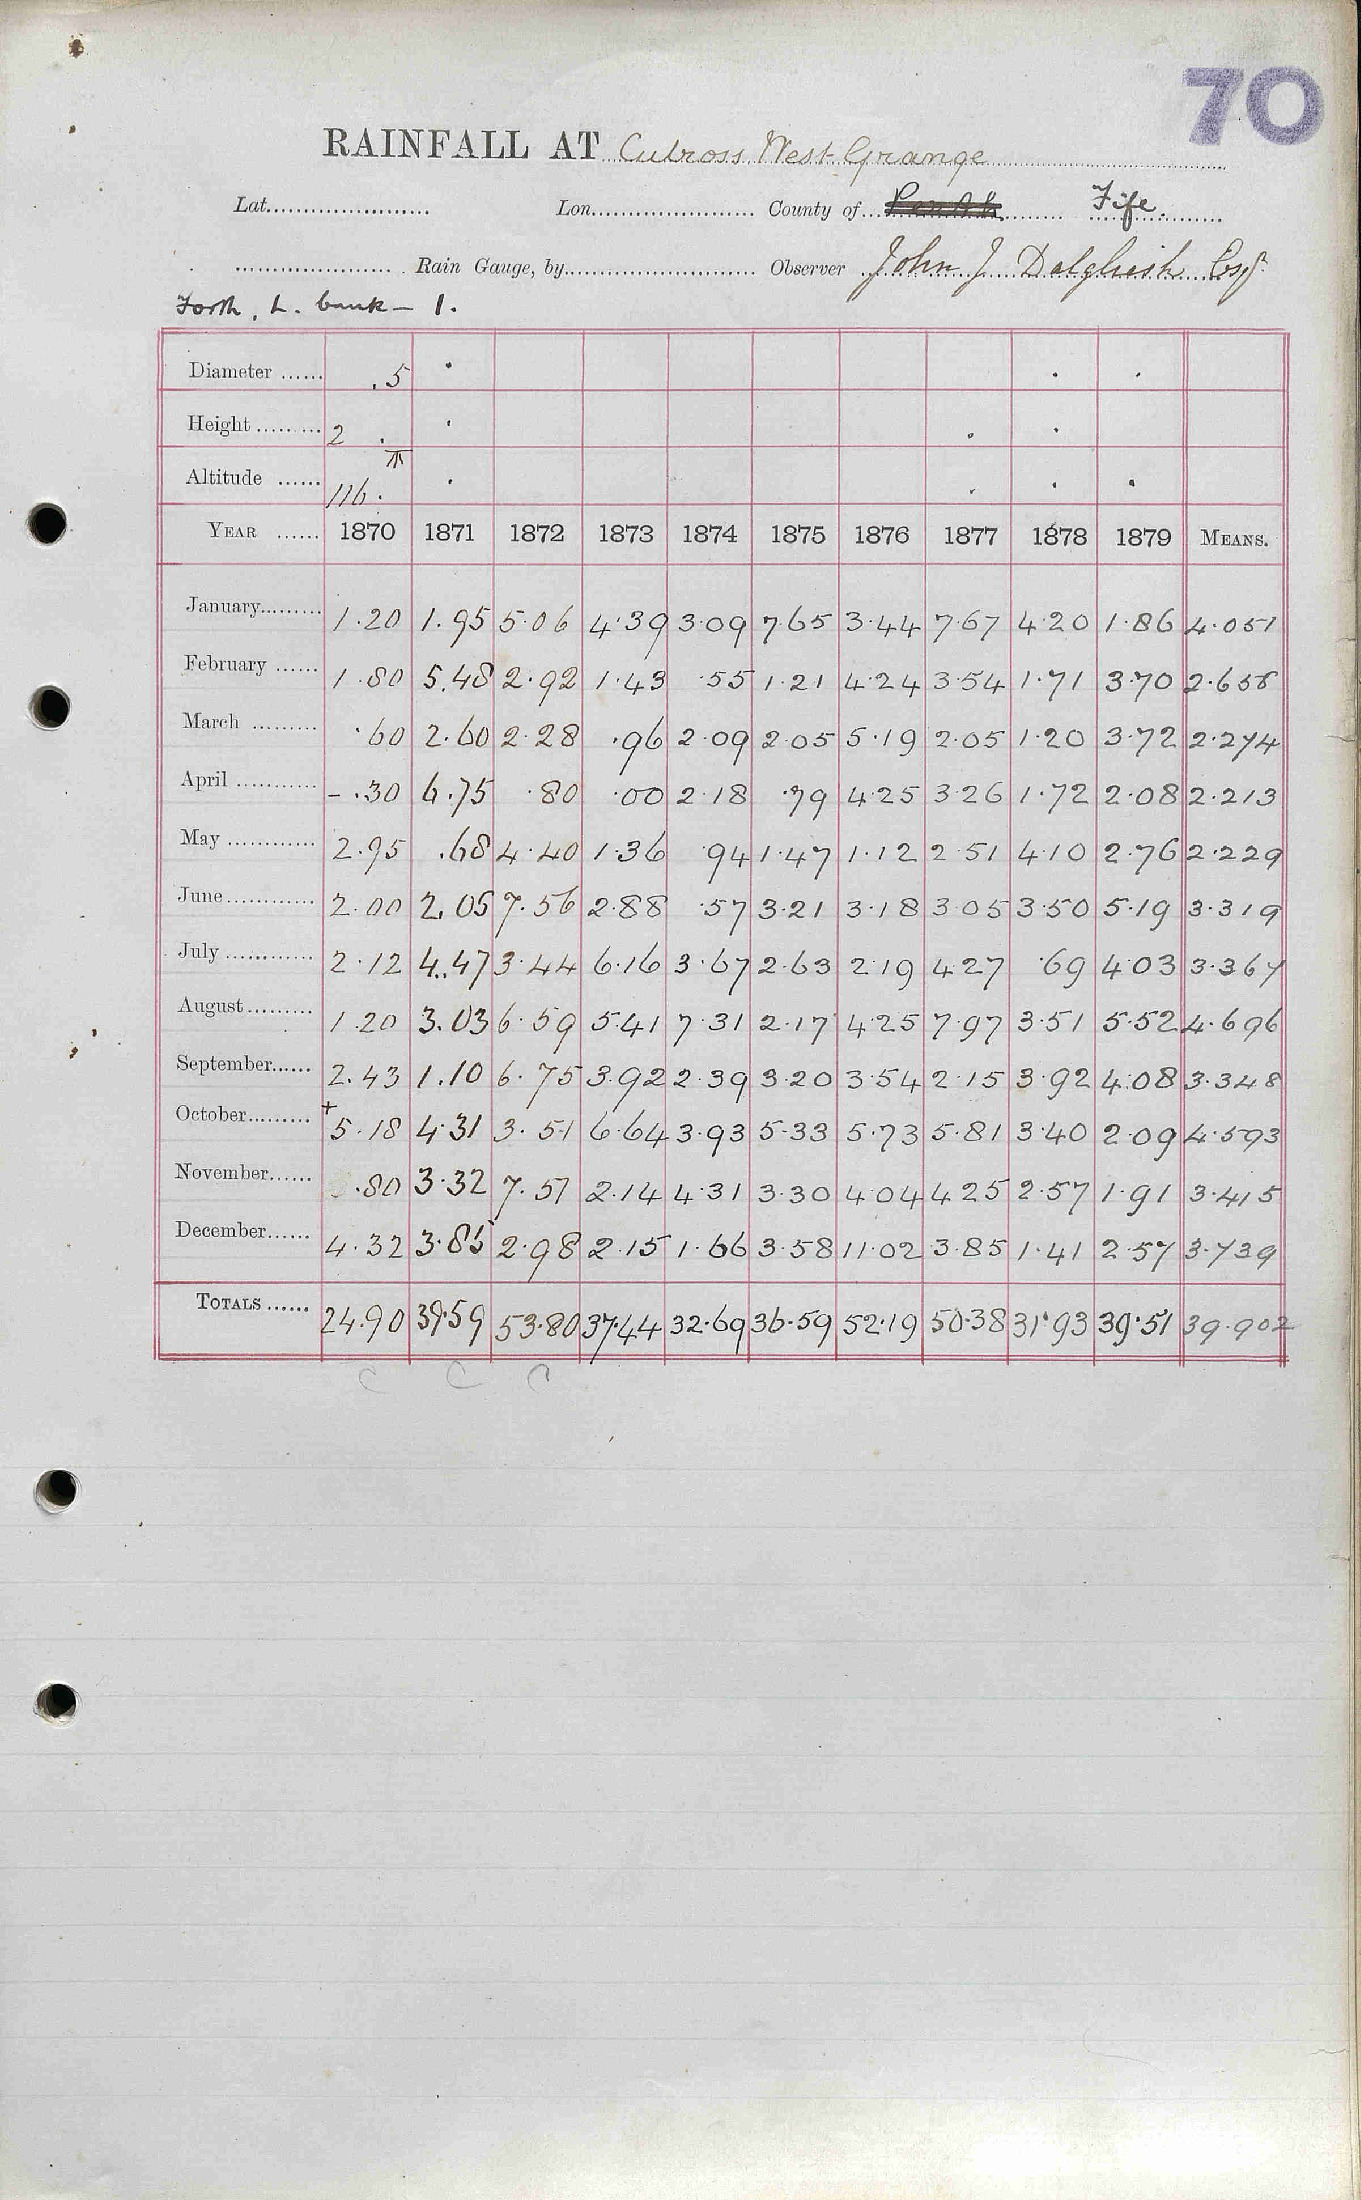 70
RAINFALL AT Culross West Grange
Lat. Lon. County of Perth Fife.
Rain Gauge, by Observer John J Dalgliesh Esqr.
Forth, L. bank — 1.
Diameter ...... .5
Height ......... 2
Altitude ...... 116.
YEAR ...... 1870 1871 1872 1873 1874 1875 1876 1877 1878 1879 MEANS.
January......... 1.20 1.95 5.06 4.39 3.09 7.65 3.44 7.67 4.20 1.86 4.051
February ...... 1.80 5.48 2.92 1.43 .55 1.21 4.24 3.54 1.71 3.70 2.658
March ......... .60 2.60 2.28 .96 2.09 2.05 5.19 2.05 1.20 3.72 2.274
April ........... - .30 6.75 .80 .00 2.18 .79 4.25 3.26 1.72 2.08 2.213
May ............ 2.95 .68 4.40 1.36 .94 1.47 1.12 2.51 4.10 2.76 2.229
June............ 2.00 2.05 7.56 2.88 .57 3.21 3.18 3.05 3.50 5.19 3.319
July ............ 2.12 4.47 3.44 6.16 3.67 2.63 2.19 4.27 .69 4.03 3.367
August......... 1.20 3.03 6.59 5.41 7.31 2.17 4.25 7.97 3.51 5.52 4.696
September...... 2.43 1.10 6.75 3.92 2.39 3.20 3.54 2.15 3.92 4.08 3.348
October......... + 5.18 4.31 3.51 6.64 3.93 5.33 5.73 5.81 3.40 2.09 4.593
November...... .80 3.32 7.51 2.14 4.31 3.30 4.04 4.25 2.57 1.91 3.415
December...... 4.32 3.85 2.98 2.15 1.66 3.58 11.02 3.85 1.41 2.57 3.739
TOTALS ...... 24.90 39.59 53.80 37.44 32.69 36.59 52.19 50.38 31.93 39.51 39.902
C C C